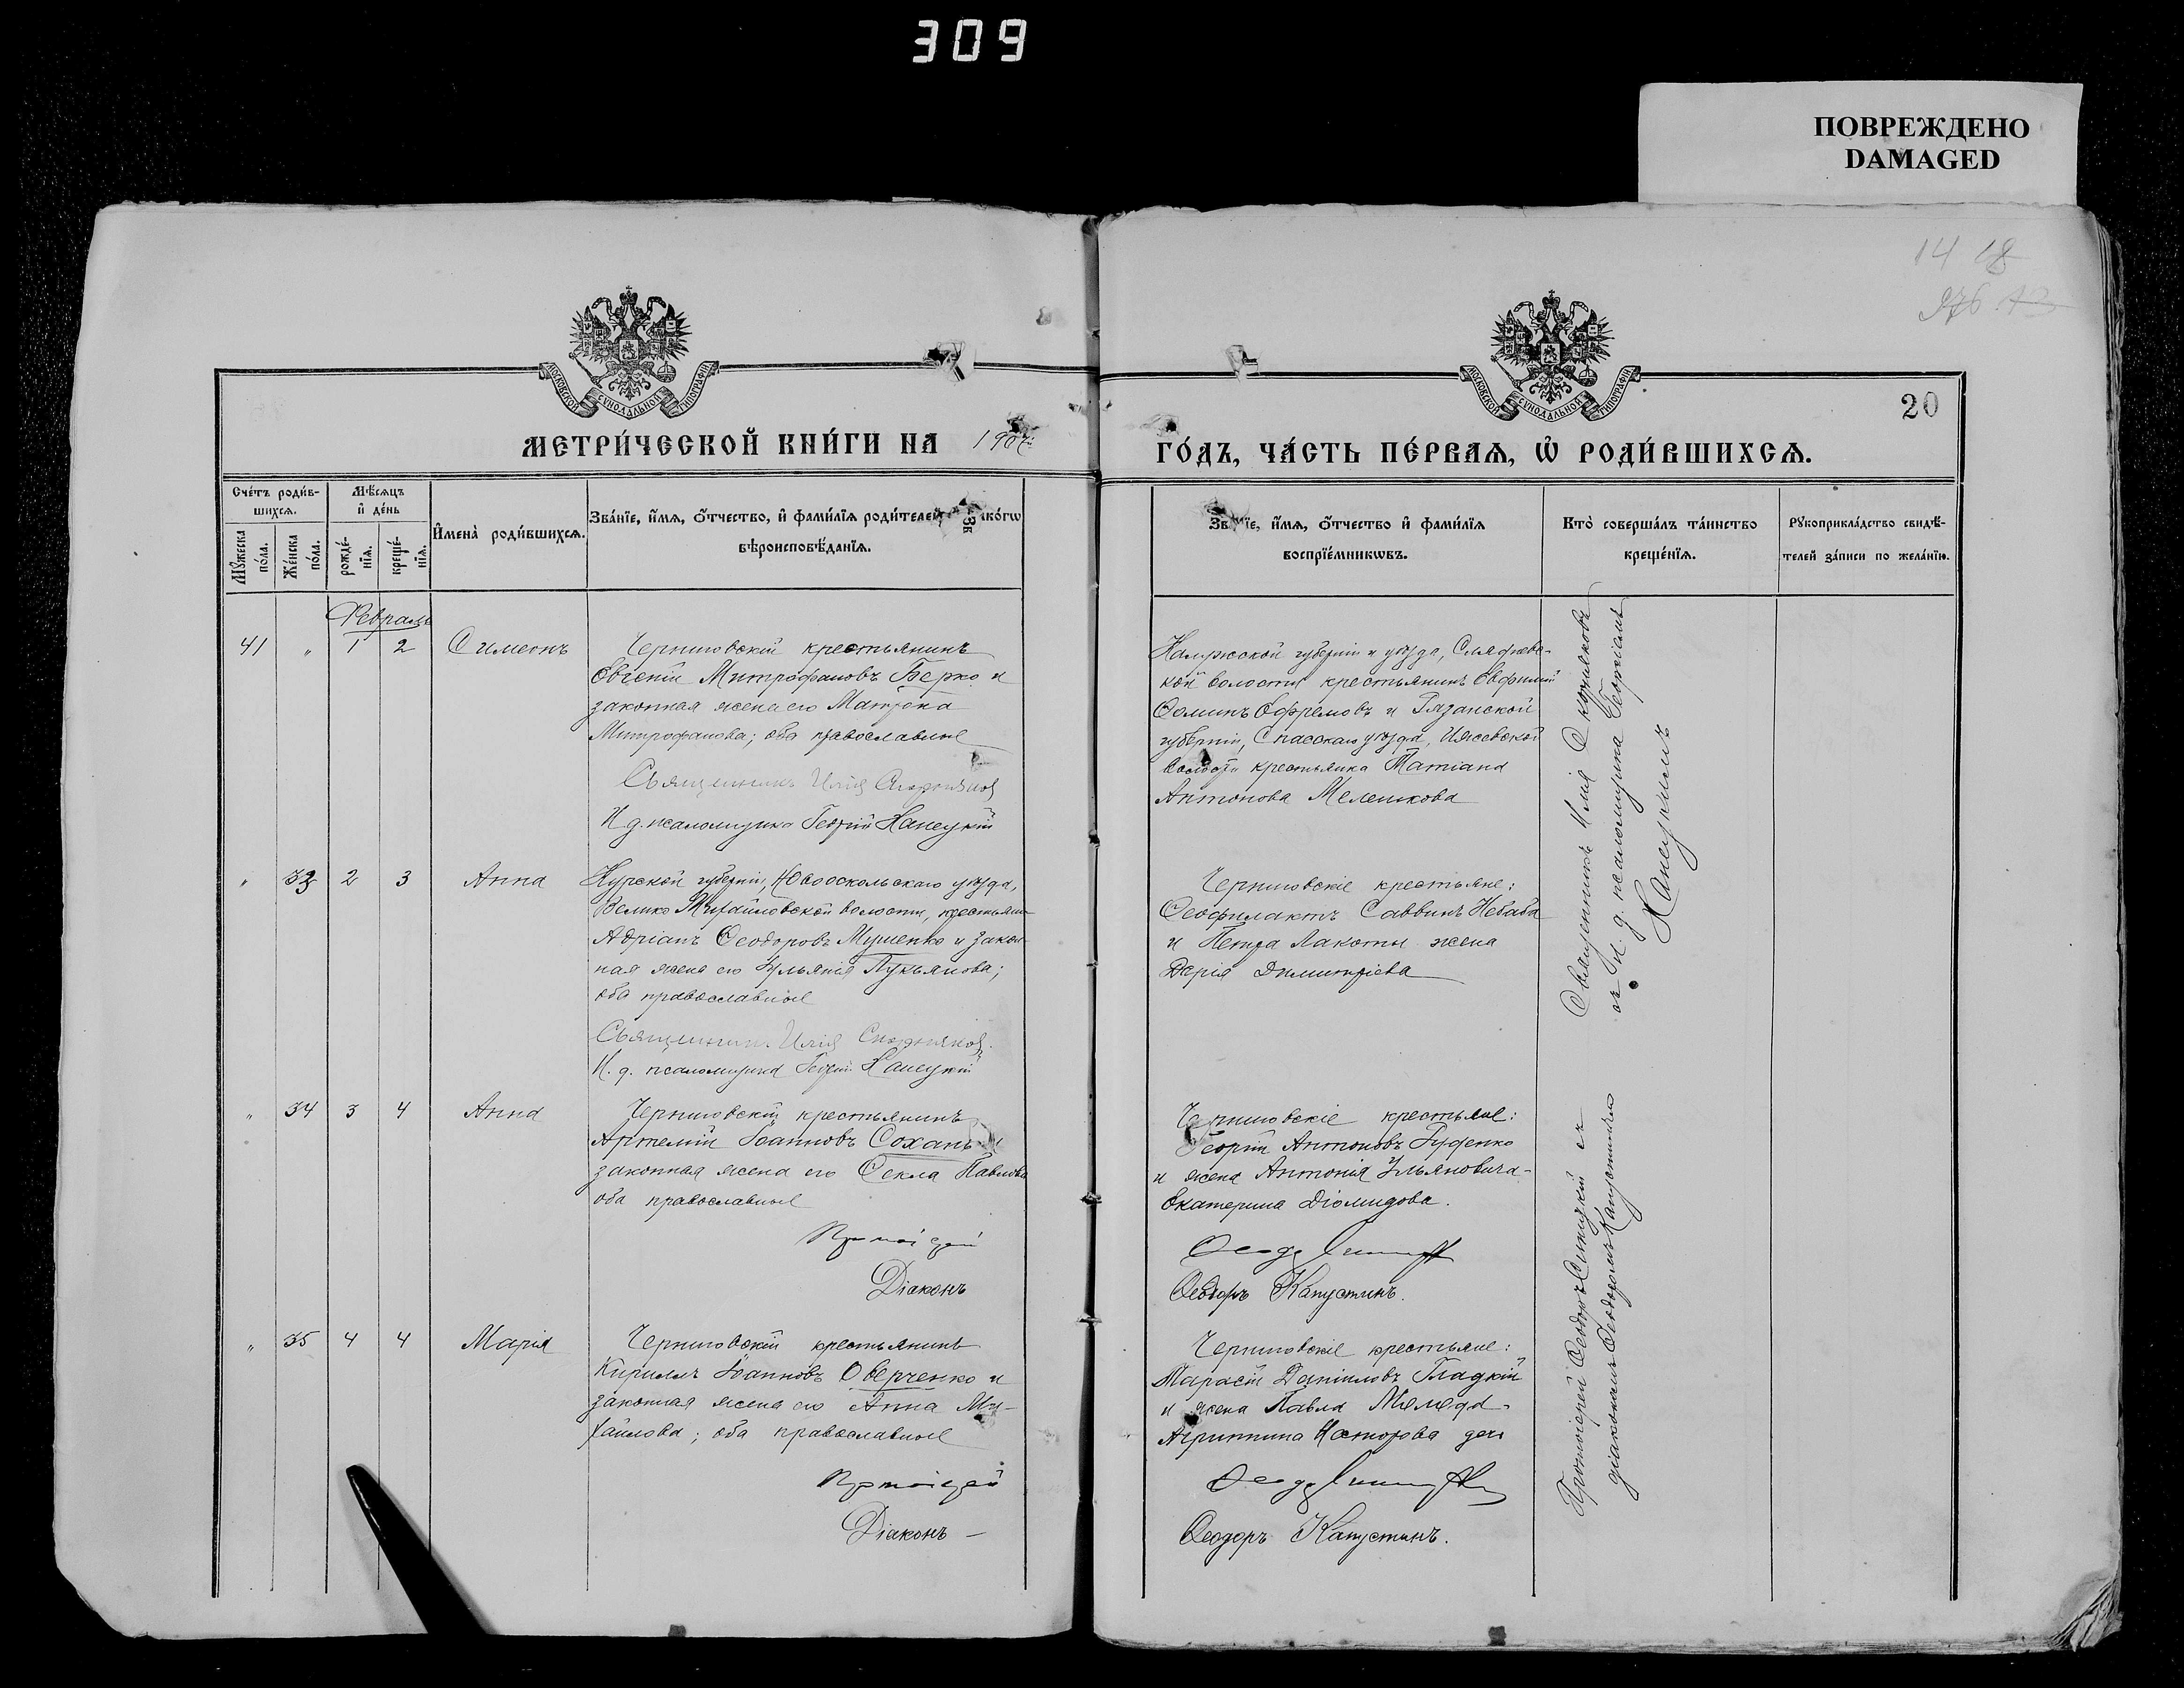 309
ПОВРЕЖДЕНО
DAMAGED
14 18
20
МОСКОВСКОЙ СѴНОДАЛЬНОЙ ТИПОГРАФІИ
МОСКОВСКОЙ СѴНОДАЛЬНОЙ ТИПОГРАФІИ
МЕТРИ́ЧЕСКОЙ КНИ́ГИ НА 1907 ГО́ДЪ, ЧА́СТЬ ПЕ́РВАЯ, Ѡ РОДИ́ВШИХСЯ.
Сче́тъ роди́в-
шихся.
Мꙋжеска
по́ла.
Же́нска
по́ла.
Мѣ́сяцъ
и҆ де́нь
рожде́-
нїя.
креще́-
нїя.
И҆мена̀ роди́вшихся.
Зва́нїе, и҆́мя, ѻ҆́тчество, и҆ фами́лїя роди́телей, и҆ како́гѡ
вѣроисповѣ́данїя.
Зва́нїе, и҆́мя, ѻ҆́тчество и҆ фами́лїя
воспрїе́мникѡвъ.
Кто̀ соверша́лъ та́инство
креще́нїя.
Рꙋкоприкла́дство свидѣ́-
телей за́писи по жела́нїю.
Февраль
41 " 1 2 Симеонъ
Черниговскій крестьянинъ
Евгеній Митрофановъ Берко и
законная жена его Матрона
Митрофанова; оба православные
Священникъ Илія Скорняковъ
И д. псаломщика Георгій Ханецкій
Калужской губерніи и уѣзда,
кой волости крестьянинъ Евфимій
Ѳоминъ Ефремовъ и Рязанской
губерніи, Спасскаго уѣзда, Ижевской
волости крестьянка Татіана
Антонова Мелешкова
Священникъ Илія Скорняковъ
съ и. д. псаломщика Георгіемъ
Ханецкимъ
" 33 2 3 Анна
Курской губерніи, Новооскольскаго уѣзда,
Велико Михайловской волости, крестьянин
Адріанъ Ѳеодоровъ Мушенко и закон-
ная жена его Ульянія Лукьянова;
оба православные
Священникъ Илія Скорняковъ.
И. д. псаломщика Георгій Ханецкій
Черниговскіе крестьяне:
Ѳеофилактъ Саввинъ Небаба
и Петра Лакоты жена
Дарія Димитріева
" 34 3 4 Анна
Черниговскій крестьянинъ
Артемій Іоанновъ Сохань и
законная жена его Ѳекла Павлова
оба православные
Протоіерей
Діаконъ
Черниговскіе крестьяне:
Георгій Антоновъ Гуденко
и жена Антонія Ульяновича-
Екатерина Діомидова.
Ѳеодоръ Капустинъ.
Протоіерей Ѳеодоръ Синицкій съ
діакономъ Ѳеодоромъ Капустинымъ
" 35 4 4 Марія
Черниговскій крестьянинъ
Кириллъ Іоанновъ Оверченко и
законная жена его Анна Ми-
хайлова; оба православные
Протоіерей
Діаконъ -
Черниговскіе крестьяне:
Тарасій Даніиловъ Гладкій
и жена Павла
Агриппина Несторова
Ѳеодоръ Капустинъ.